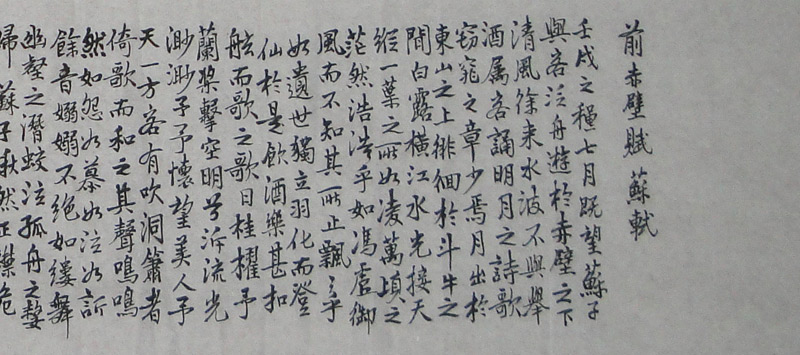 前赤壁賦 蘇軾
壬戌之穐七月既望蘇子
與客泛舟遊於赤壁之下
清風徐来水波不興舉
酒属客誦明月之詩歌
窈窕之章少焉月出於
東山之上徘徊於斗牛之
間白露横江水光接天
縱一葦之所如凌萬頃之
茫然浩浩乎如馮虚御
風而不知其所止飄々乎
如遺世獨立羽化而登
仙於是飲酒樂甚扣
舷而歌之歌曰桂櫂兮
蘭槳擊空明兮泝流光
渺渺兮予懷望美人兮
天一方客有吹洞簫者
倚歌而和之其聲嗚嗚
然如怨如慕如泣如訴
餘音嫋嫋不絶如縷舞
幽壑之潛蛟泣孤舟之嫠
婦 蘇子愀然正襟危